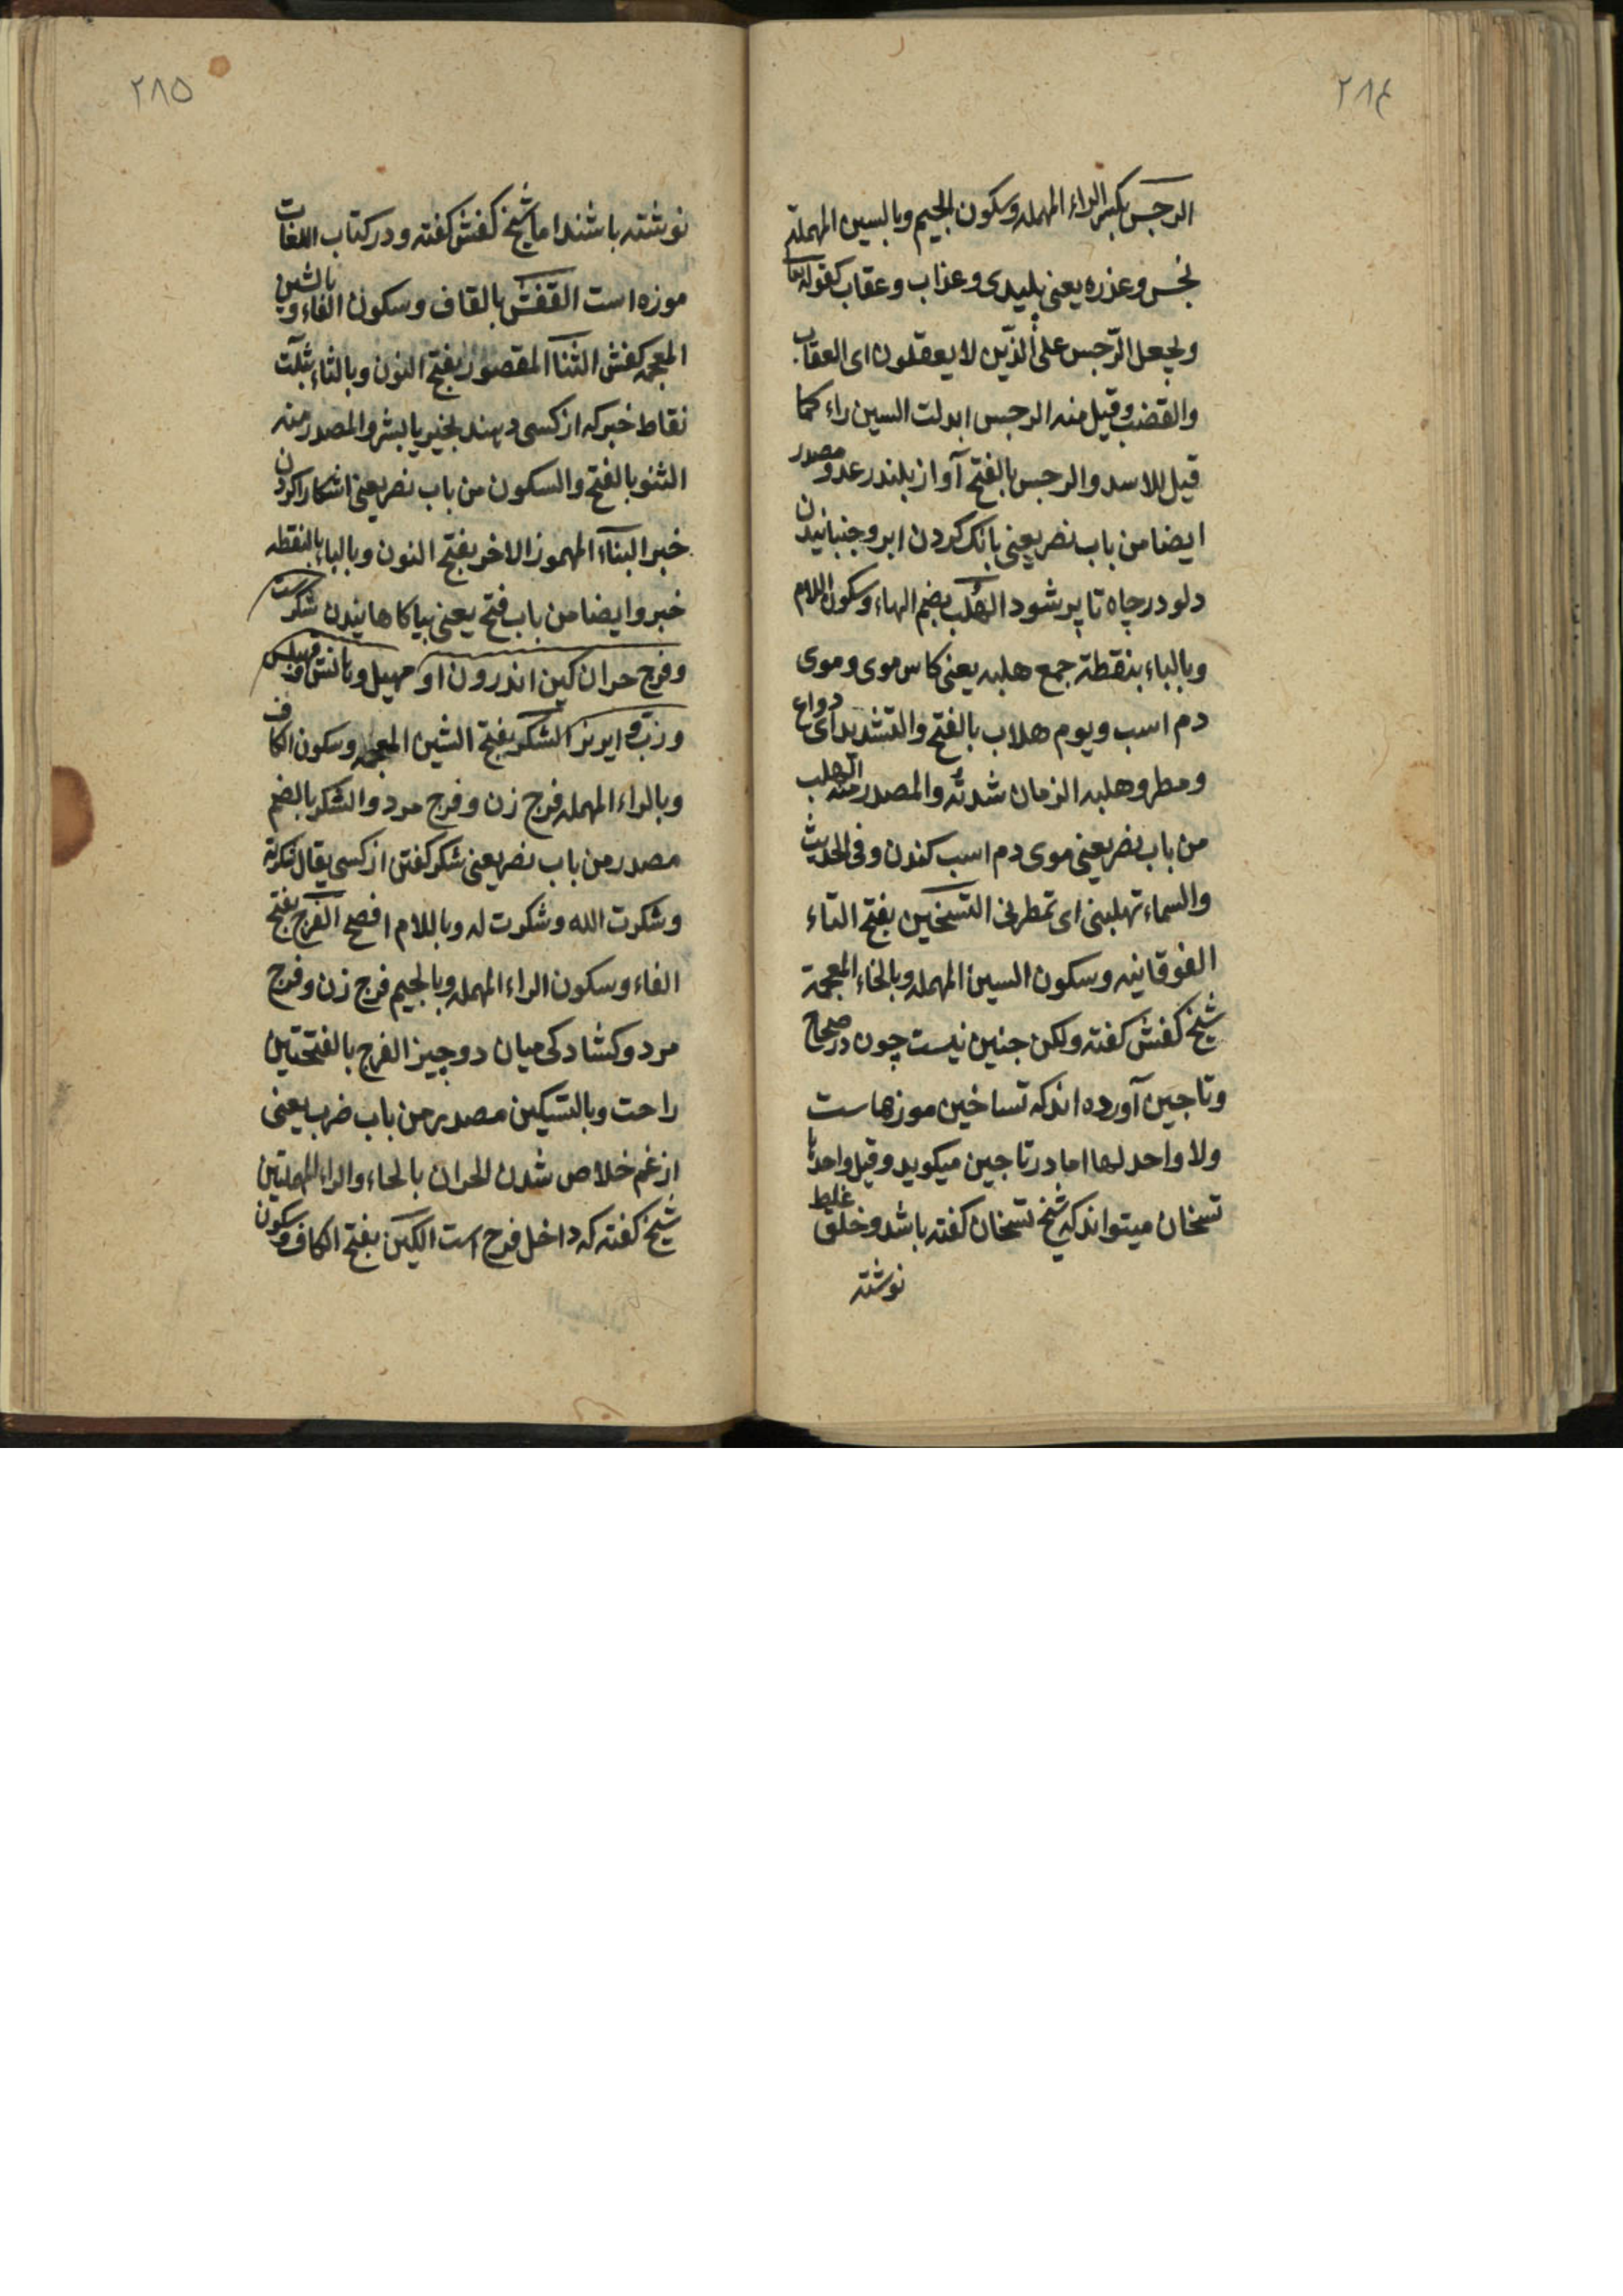 ٢٨٤
الرجس بكسر الراء المهمله وسكون الجيم وبالسين المهملة
نجس وعذره يعنى پليدى وعذاب وعقاب كقوله تعا
ويجعل الرّجس على الّذين لا يعقلون اى العقاب
والغضب وقيل منه الرجس ابدلت السين راء كما
قيل للاسد والرجس بالفتح آواز بلند رعد و مصدر
ايضا من باب نصر يعنى بانك كردن ابر وجنبانيدن
دلو در چاه تا پر شود الهُلب بضم الهاء وسكون اللام
وبالباء بنقطة جمع هلبه يعنى كاس موى وموى
دم اسب ويوم هلاب بالفتح والتشديد اى دواع
ومطر وهلبه الزمان شدتُه والمصدر منه الهلب
من باب نصر يعنى موى دم اسب كندن وفى الحديث
والسماء تهلبنى اى تمطرنى التسخين بفتح التاء
الفوقانيه وسكون السين المهمله وبالخاء المعجمة
شيخ كفش كفته ولكن جنين نيست چون در صحاح
وتاجين آورده اند كه تساخين موزهاست
ولا واحد لها اما در تاجين ميكويد وقيل واحدها
تسخان ميتواند كه شيخ تسخان كفته باشد وخلق غلط
نوشته
٢٨٥
نوشته باشند اما شيخ كفش كفته ودر كتاب اللغات
موزه است القفش بالقاف وسكون الفاء وبالشين
المعجمه كفش النثا المقصور بفتح النون وبالثاء بثلث
نقاط خبر كه از كسى دهند بخير يا بشر والمصدر منه
النثو بالفتح والسكون من باب نصر يعنى اشكارا كردن
خبر النبآء المهموز الاخر بفتح النون وبالباء بالنقطه
خبر وايضا من باب فتح يعنى بياكاهانيدن شكرست
وفرج حران كين اندرون او مهبل وبا
وزبّ و ايرنر الشكر بفتح الشين المعجمه وسكون الكاف
وبالراء المهمله فرج زن وفرج مرد والشكر بالضم
مصدر من باب نصر يعنى شكر كفتن از كسى يقال شكرته
وشكرت الله وشكرت له وباللام افصح الفَرج بفتح
الفاء وسكون الراء المهمله وبالجيم فرج زن وفرج
مرد وكشادكى ميان دو چيز الفرج بالفتحتين
راحت وبالتسكين مصدر من باب ضرب يعنى
از غم خلاص شدن الحران بالحاء والراء المهملتين
شيخ كفته كه داخل فرج است الكين بفتح الكاف وسكون